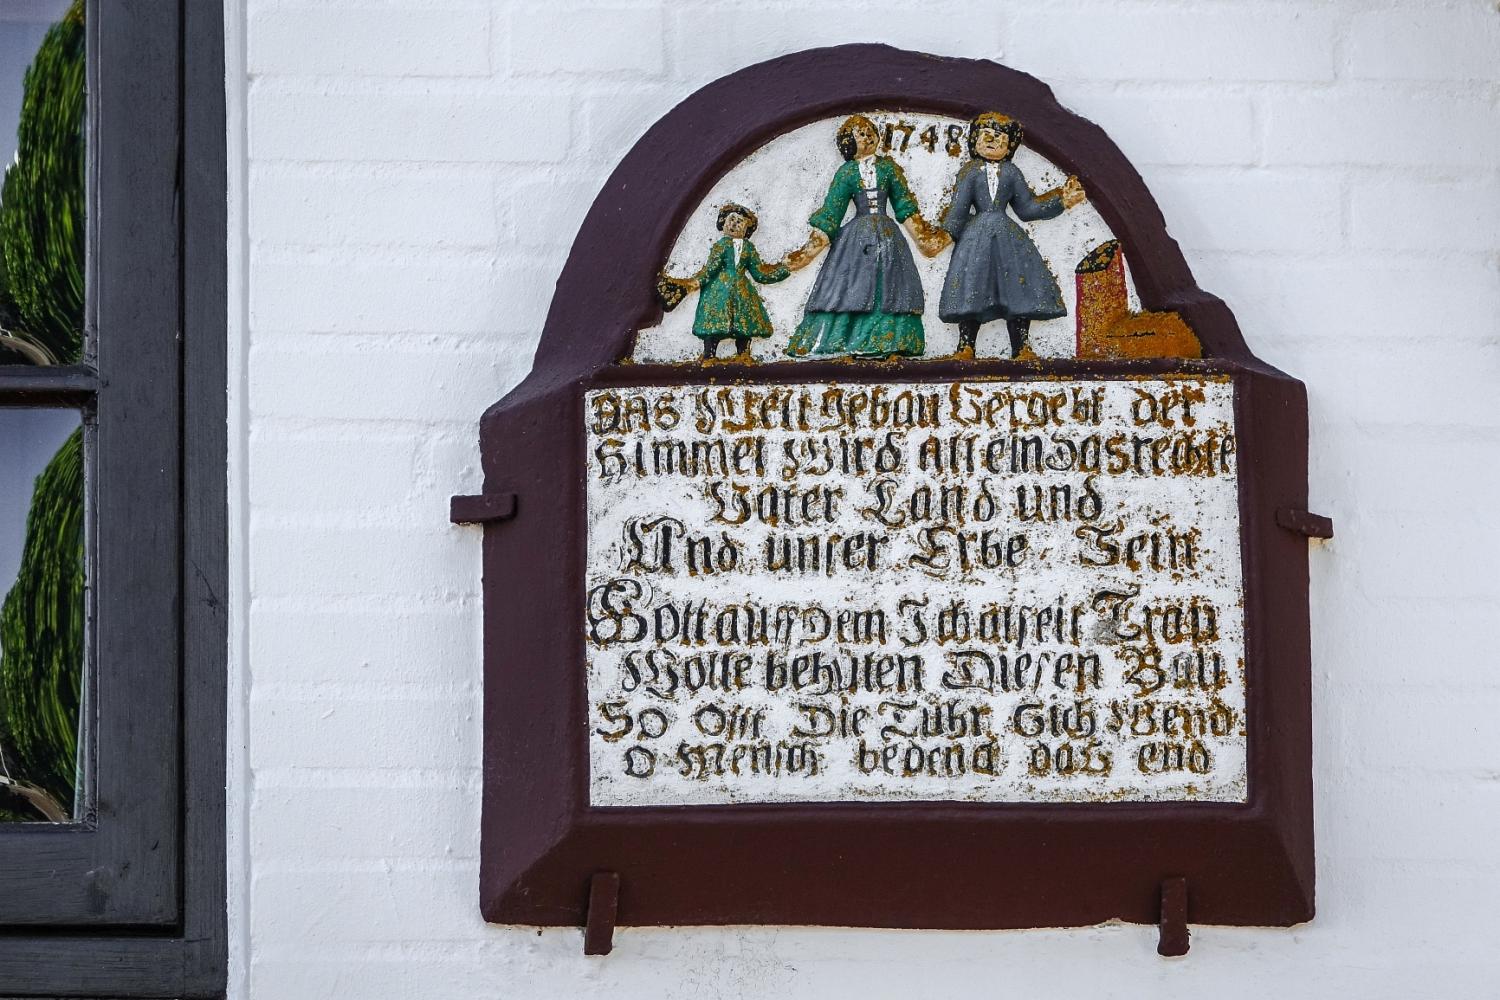 1748
Das Welt gebau Vergeht der
Himmel Wird allein das rechte
Vater Land und
Und unser Erbe Sein
Gott auff dem Ich alseit Trau
Wolle behuten Diesen Bau
So Offt Die Tuhr Sich Wend
O Mensch bedenck das end